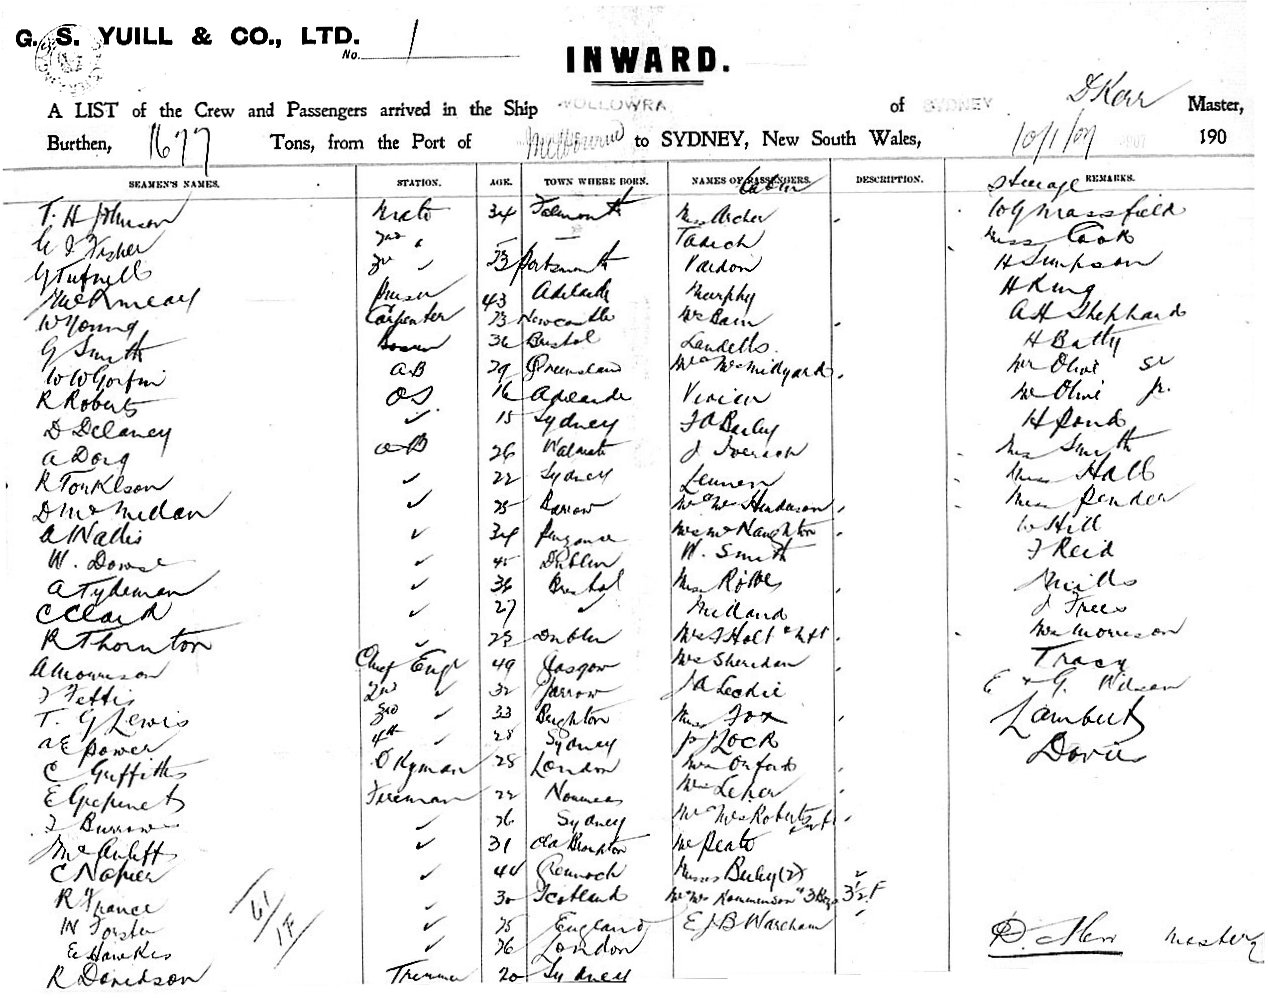 G. S. YUILL & CO., LTD.
No. 1
INWARD.
A LIST of the Crew and Passengers arrived in the Ship WOLLOWRA of SYDNEY D Kerr Master,
Burthen, 1677 Tons, from the Port of Melbourne to SYDNEY, New South Wales, 10/1/07 190
SEAMEN'S NAMES. STATION. AGE. TOWN WHERE BORN. NAMES OF PASSENGERS. DESCRIPTION. REMARKS.
Cabin Steerage
T. H Johnson Mate 34 Falmouth Miss Archer W G Massfield
Fisher 2nd " — — Tadich Miss Cook
G Tufnell 3rd ✓ 23 Portsmouth Vardon H Simpson
Purser 43 Adelaide Murphy H King
W Young Carpenter 73 Newcastle McBain A H Shephard
G Smith 36 Bristol Landells H Batty
W W AB 29 Queensland Mr & Mrs Midyard Mr Olive Sr
R Roberts OS 16 Adelaide Vivian Mr Olive Jr.
D Delaney ✓ 15 Sydney J A Bailey H Pond
A Doig AB 26 J Iverach Mrs Smith
R Torklson ✓ 22 Sydney Lennen Miss Hall
D McMillan ✓ 25 Barrow Mr & Mrs Henderson Miss Pender
A Wallis ✓ 34 Penzance Mrs McNaughton W Hill
W. Dowse ✓ 45 Dublin W. Smith J Reid
A Tydeman ✓ 36 Bristol Miss Mills
C Clard ✓ 27 ✓ Midland J Frees
R Thornton ✓ 25 Dublin Mrs J Holt & Inft Mrs Morrison
A Morrison Chief Engr 49 Glasgow Mrs Sheridan Tracy
J Fettis 2nd ✓ 32 Jarrow J A Leckie E & G. Wilson
T. G Lewis 3rd ✓ 33 Brighton Miss Fox Lambert
A E Power 4th ✓ 28 Sydney P Flock Davies
C Griffiths Dkyman 28 London Mrs Oxford
E Fireman 22 Noumea Mrs
J Burrows ✓ 26 Sydney Mr & Mrs Roberts & Inft
McAuliff ✓ 31 Old Brompton Mr Peate
C Napier ✓ 44 Greenock Misses (2) ✓
R France ✓ 30 Scotland Mr & Mrs & 3 Boys 3½ F
W Forster ✓ 25 England E J B Wareham
E Hawkes ✓ 26 London
R Davidson Trimmer 20 Sydney
61/1F
D. Kerr Master